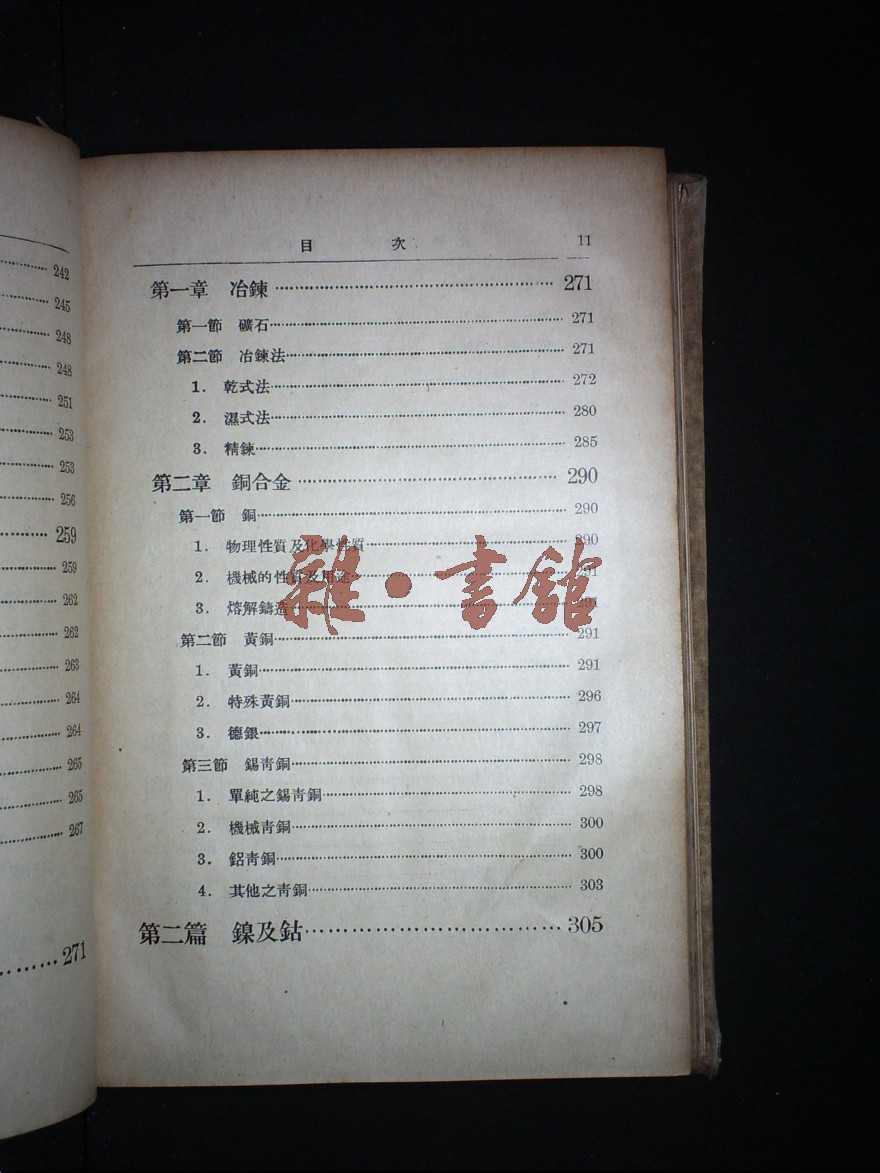 242
245
248
248
251
253
253
256
259
259
262
262
263
264
264
265
265
267
271
目 次 11
第一章 冶鍊 271
第一節 礦石 271
第二節 冶鍊法 271
1. 乾式法 272
2. 濕式法 280
3. 精鍊 285
第二章 銅合金 290
第一節 銅 290
1. 物理性質及化學性質 290
2. 機械的性質及用途 291
3. 熔解鑄造 291
雜·書館
第二節 黃銅 291
1. 黃銅 291
2. 特殊黃銅 296
3. 德銀 297
第三節 錫靑銅 298
1. 單純之錫靑銅 298
2. 機械靑銅 300
3. 鋁靑銅 300
4. 其他之靑銅 303
第二篇 鎳及鈷 305